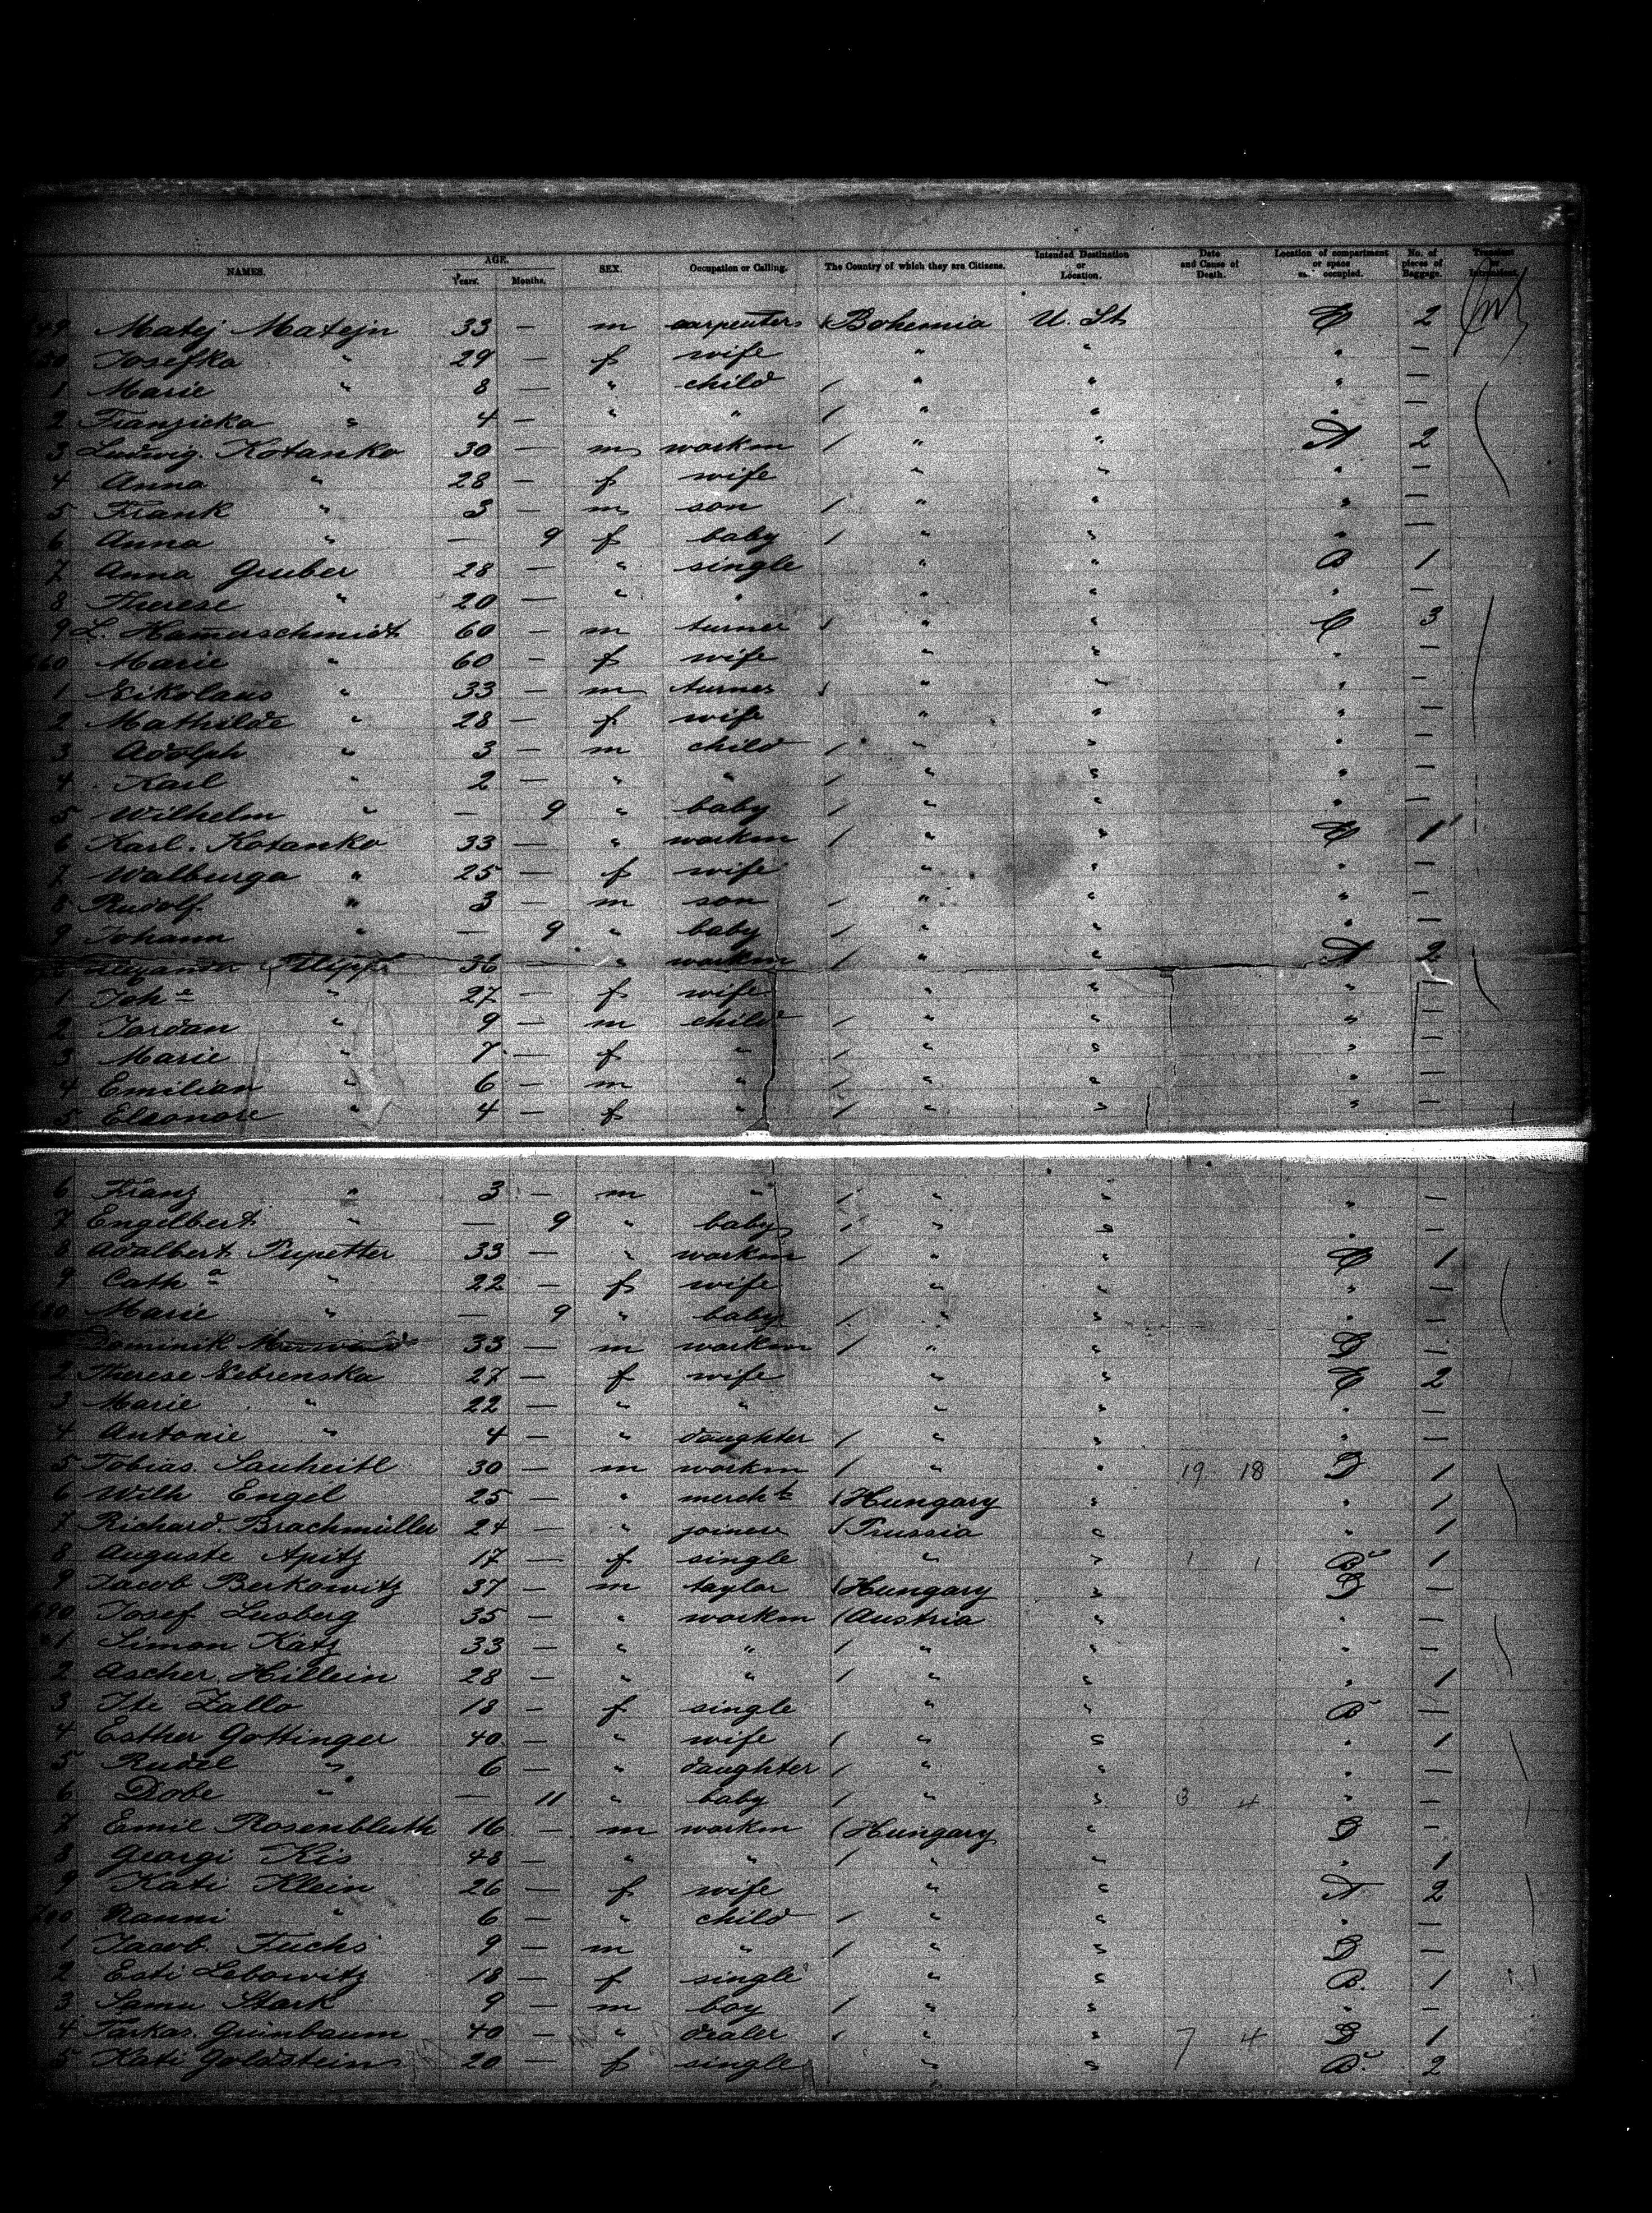 NAMES. AGE. Years. Months. SEX. Occupation or Calling. The Country of which they are Citizens. Intended Destination or Location. Date and Cause of Death. Location of compartment or space occupied. No. of pieces of Baggage. Transient or
49 Matej Matejn 33 — m carpenter Bohemia U. St. C 2
650 Josefka " 29 — f wife " " " —
1 Marie " 8 — " child " " " —
2 Franziska " 4 — " " " " " —
3 Ludwig Kotanko 30 — m workm " " A 2
4 Anna " 28 — f wife " " " —
5 Frank " 3 — m son " " " —
6 Anna " — 9 f baby " " " —
7 Anna Gruber 28 — " single " " B 1
8 Therese " 20 — " " " " " —
9 L. Hamerschmidt 60 — m turner " " C 3
660 Marie " 60 — f wife " " " —
1 Nikolaus " 33 — m turner " " " —
2 Mathilde " 28 — f wife " " " —
3 Adolph " 3 — m child " " " —
4 Karl " 2 — " " " " " —
5 Wilhelm " — 9 " baby " " " —
6 Karl Kotanko 33 — " workm " " C 1
7 Walburga " 25 — f wife " " " —
8 Rudolf " 3 — m son " " " —
9 Johann " — 9 " baby " " " —
Alexander 36 — " workm " " A 2
1 Joh " 27 — f wife " " " —
2 Jordan " 9 — m child " " " —
3 Marie " 7 — f " " " " —
4 Emilian " 6 — m " " " " —
5 Eleonore " 4 — f " " " " —
6 Franz " 3 — m " " " " —
7 Engelbert " — 9 " baby " " " —
8 Adalbert Pupetter 33 — " workm " " C 1
9 Cath a " 22 — f wife " " " —
680 Marie " — 9 " baby " " " —
Dominik 33 — m workm " " D —
2 Therese Nebrenska 27 — f wife " " C 2
3 Marie " 22 — " " " " " —
4 Antonie " 4 — " daughter " " " —
5 Tobias Sauheitl 30 — m workm " " 19 18 D 1
6 Wilh Engel 25 — " mercht Hungary " " 1
7 Richard Brachmüller 24 — " joiner Prussia " " 1
8 Auguste Apitz 17 — f single " " 1 1 B 1
9 Jacob Berkowitz 37 — m taylor Hungary " D —
690 Josef Lusberg 35 — " workm Austria " " —
1 Simon Katz 33 — " " " " " —
2 Ascher Hillein 28 — " " " " " 1
3 Ite Zallo 18 — f single " " B —
4 Esther Gottinger 40 — " wife " " " 1
5 Rudel " 6 — " daughter " " " —
6 Dobe " — 11 " baby " " 3 4 " —
7 Emil Rosenbluth 16 — m workm Hungary " D —
8 Georgi Kis 48 — " " " " " 1
9 Kati Klein 26 — f wife " " A 2
700 Nanni " 6 — " child " " " —
1 Jacob Fuchs 9 — m " " " D —
2 Esti Lebowitz 18 — f single " " B. 1
3 Samu Stark 9 — m boy " " " —
4 Farkas Grünbaum 40 — " dealer " " 7 4 D 1
5 Kati Goldstein 20 — f single " " B 2